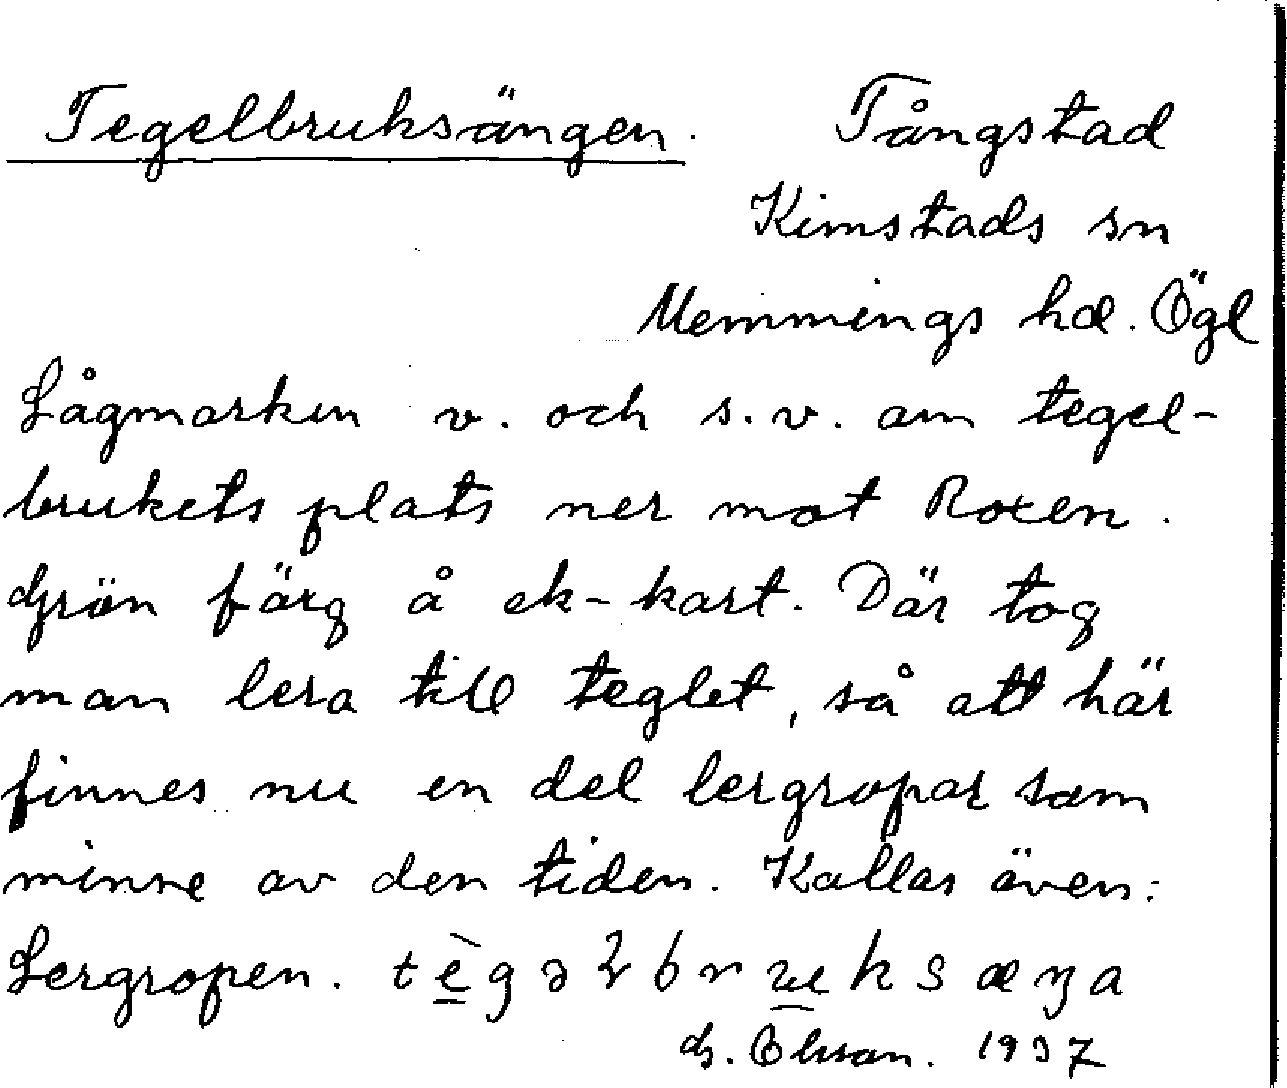 Tegelbruksängen. Tångstad
Kimstads sn
Memmings hd. Ögl
Lågmarken v. och s.v. om tegel-
brukets plats ner mot Roxen.
Grön färg å ek-kart. Där tog
man lera till teglet, så att här
finnes nu en del lergropar som
minne av den tiden. Kallas även:
Lergropen.
1937